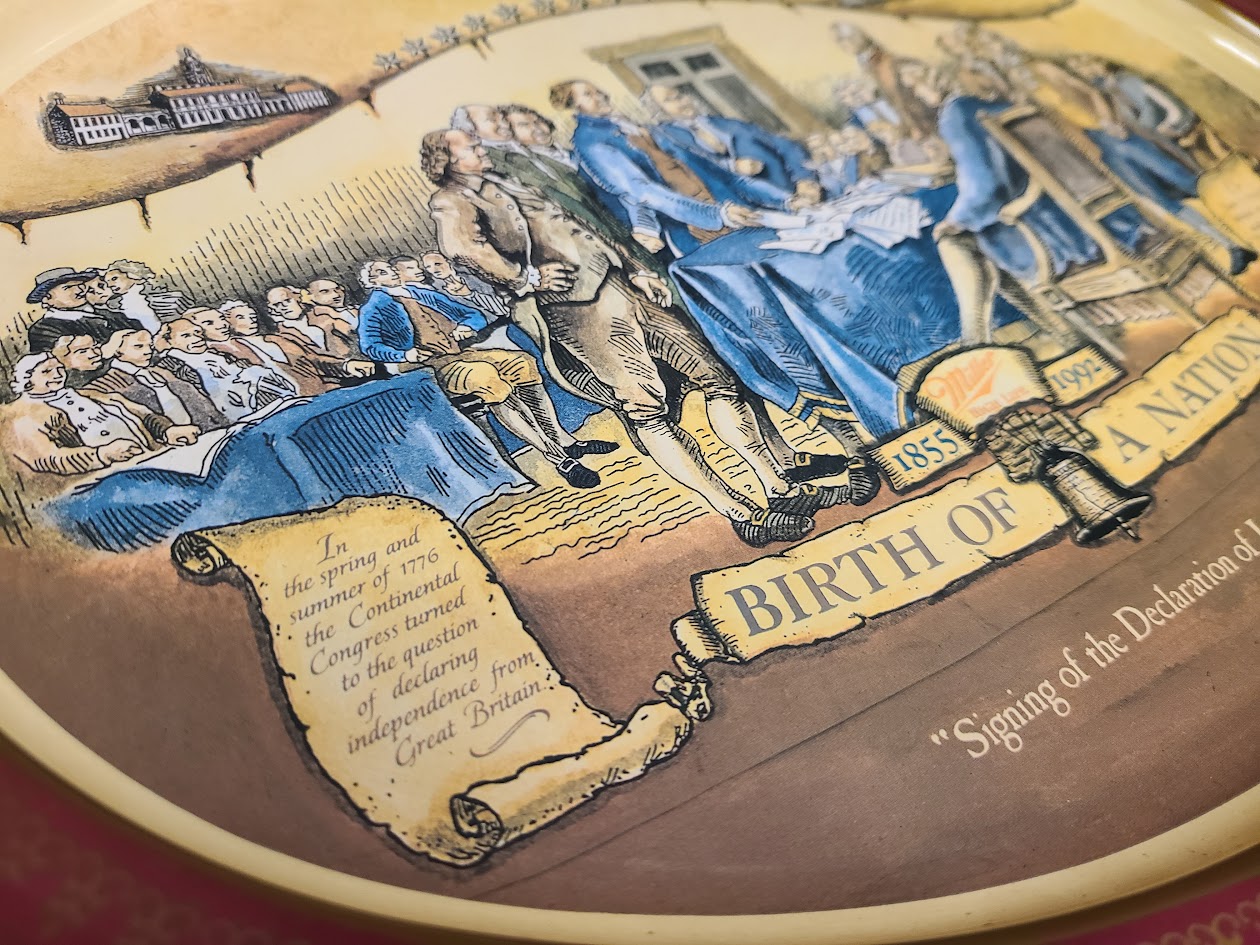 In
the spring and
summer of 1776
the Continental
Congress turned
to the question
of declaring
independence from
Great Britain.
Miller
1855 1992
BIRTH OF A NATION
"Signing of the Declaration of